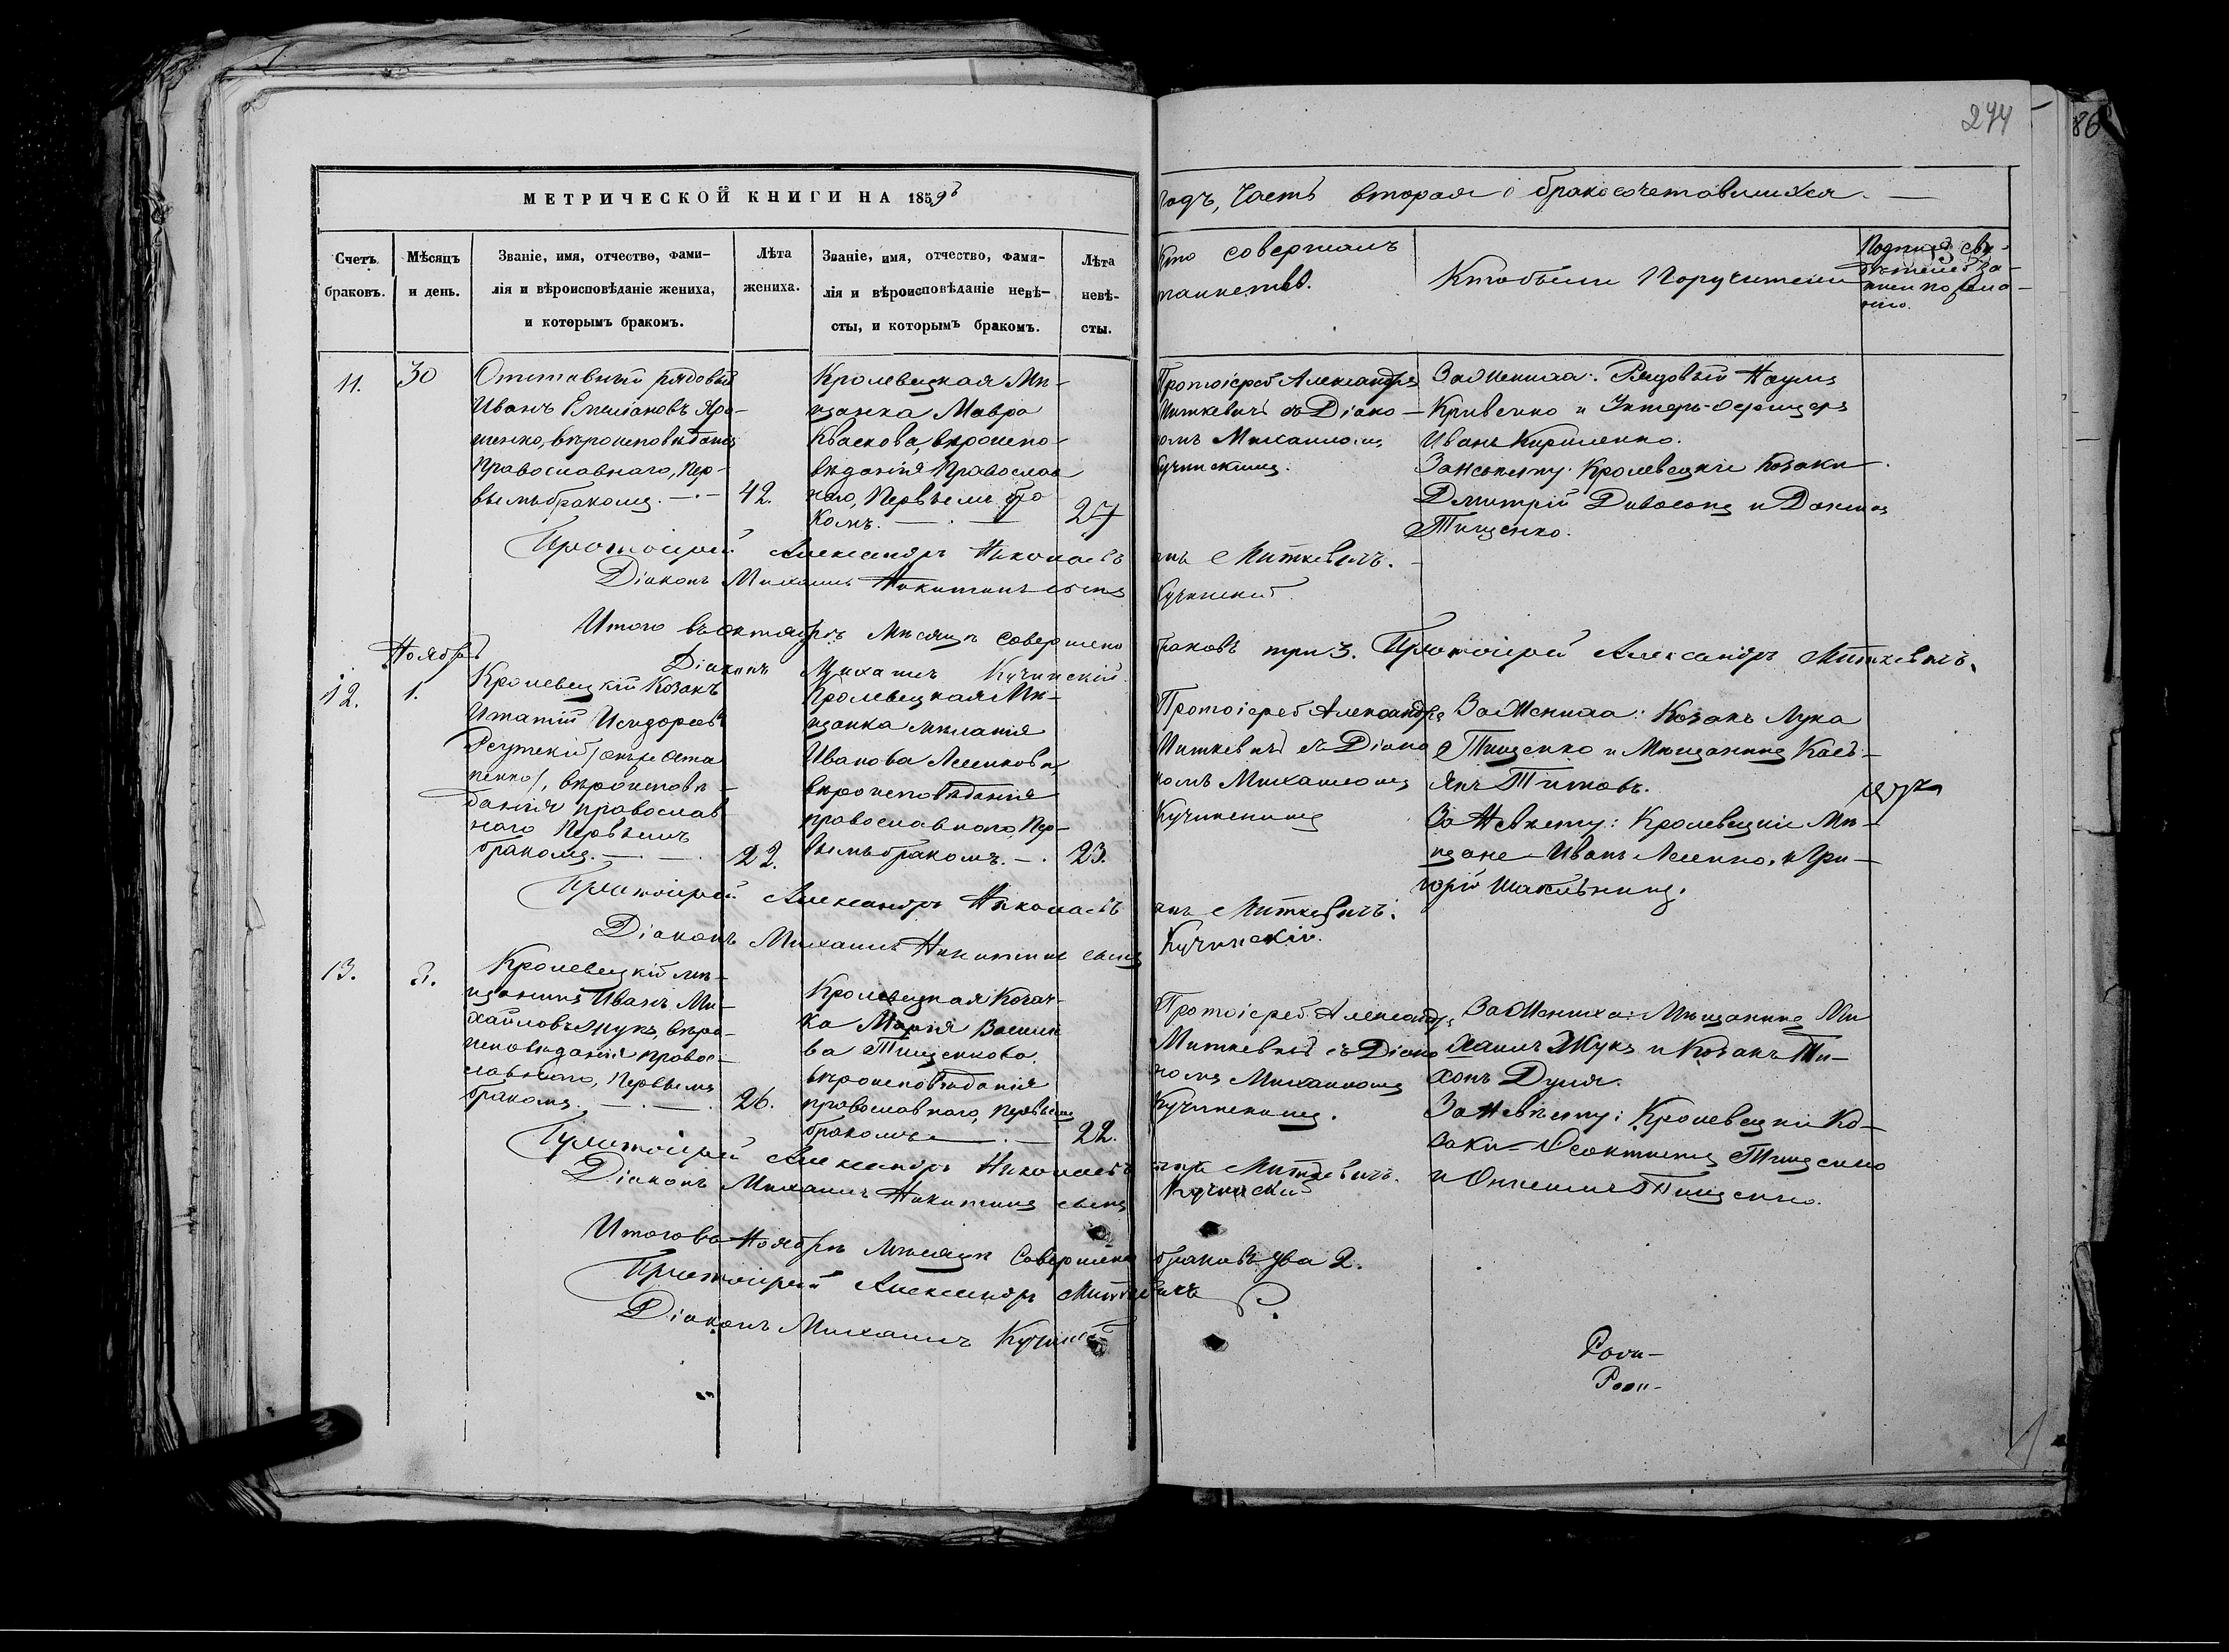 274
86
МЕТРИЧЕСКОЙ КНИГИ НА 1859й
годъ, Часть вторая о бракосочетавшихся.
Счетъ браковъ.
Мѣсяцъ и день.
Званіе, имя, отчество, фами-
лія и вѣроисповѣданіе жениха,
и которымъ бракомъ.
Лѣта
жениха.
Званіе, имя, отчество, фами-
лія и вѣроисповѣданіе невѣ-
сты, и которымъ бракомъ.
Лѣта
невѣ-
сты.
Кто совершалъ
таинство.
Кто были Поручители
11.
30
Отставный рядовый
Иванъ Емельяновъ Яро-
шенко, вѣроисповѣданія
Православнаго, Пер-
вымъ бракомъ.
42.
Кролевецкая Мѣ-
щанка Мавра
Кваскова, вѣроиспо-
вѣданія Православ
наго, Первымъ бра
комъ.
27
Протоіерей Александръ
Миткевичъ съ Діако-
номъ Михаиломъ
Кучинскимъ.
За Жениха: Рядовый Наумъ
Кривенко и Унтеръ-Офицеръ
Иванъ Кириленко.
За Невѣсту: Кролевецкіе Козаки
Дмитрій и
Тищенко.
Протоіерей Александръ Николаевъ
сынъ Миткевичъ.
Діаконъ Михаилъ Никитинъ сынъ
Кучинский.
Итого въ октябрѣ Мѣсяцѣ совершено
браковъ три 3. Протоіерей Александръ Миткевичъ.
Діаконъ Михаилъ Кучинскій.
Ноябрь
12.
1.
Кролевецкій Козакъ
Игнатій Исидоровъ
православ
наго Первымъ
бракомъ.
22.
Кролевецкая Мѣ-
щанка Меланія
Иванова
вѣроисповѣданія
православнаго, Пер-
вымъ бракомъ.
23.
Протоіерей Александръ
Миткевичъ съ Діако
номъ Михаиломъ
Кучинскимъ
За Жениха: Козакъ Лука
Тищенко и Мѣщанинъ Касъ-
янъ Титовъ.
За Невѣсту: Кролевецкіе Мѣ-
щане Иванъ и Гри-
горій
Протоіерей Александръ Николаевъ
сынъ Миткевичъ.
Діаконъ Михаилъ Никитинъ сынъ
Кучинскій.
13.
Кролевецкій мѣ-
щанинъ Иванъ Ми-
хайловъ Жукъ, вѣро-
исповѣданія правос-
лавнаго, Первымъ
бракомъ.
26.
Кролевецкая Козач-
ка Марія Василь
ва Тищенкова
вѣроисповѣданія
православнаго, Первымъ
бракомъ
22.
Протоіерей Александръ
Миткевичъ съ Діако
номъ Михаиломъ
Кучинскимъ.
За Жениха: Мѣщанинъ Ми
хаилъ Жукъ и Козакъ Ти-
хонъ Дуля.
За Невѣсту: Кролевецкіе Ко-
заки Феоктистъ Тищенко
и Тищенко.
Протоіерей Александръ Николаевъ
сынъ Миткевичъ.
Діаконъ Михаилъ Никитинъ сынъ
Кучинский
Итого въ Ноябрѣ Мѣсяцѣ Совершено браковъ два 2.
Протоіерей Александръ Миткевичъ
Діаконъ Михаилъ Кучинский